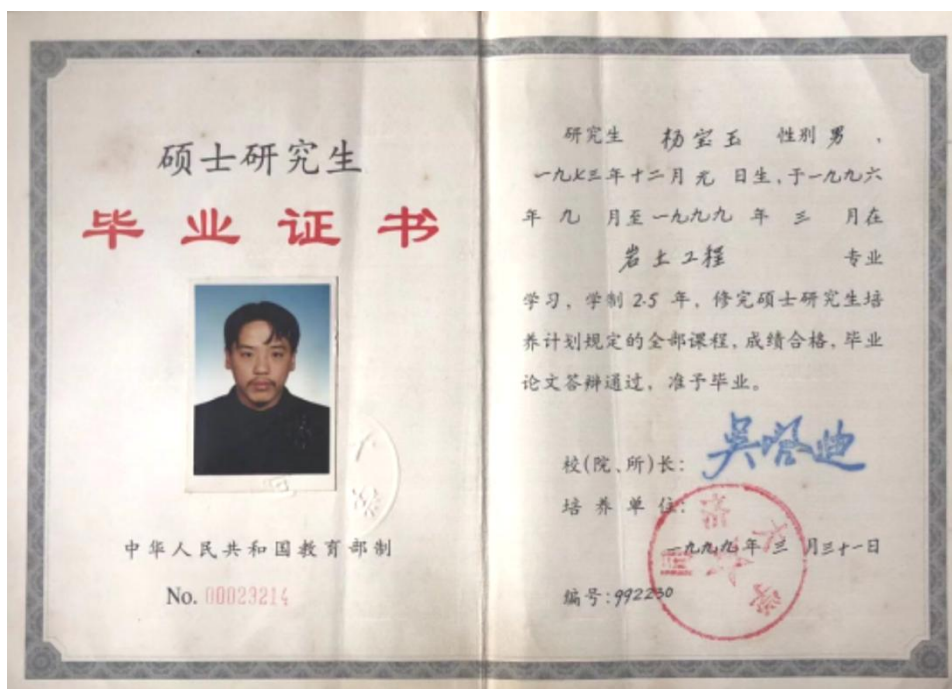 硕士研究生
毕业证书
中华人民共和国教育部制
No. 00023214
研究生 杨宝玉 性别男，
一九七三年十二月 日生，于一九九六
年 九 月至一九九九 年 三 月在
岩土工程 专业
学习，学制 2.5 年，修完硕士研究生培
养计划规定的全部课程，成绩合格，毕业
论文答辩通过，准予毕业。
校(院、所)长：
培养单位：
一九九九年三月三十一日
编号：992230